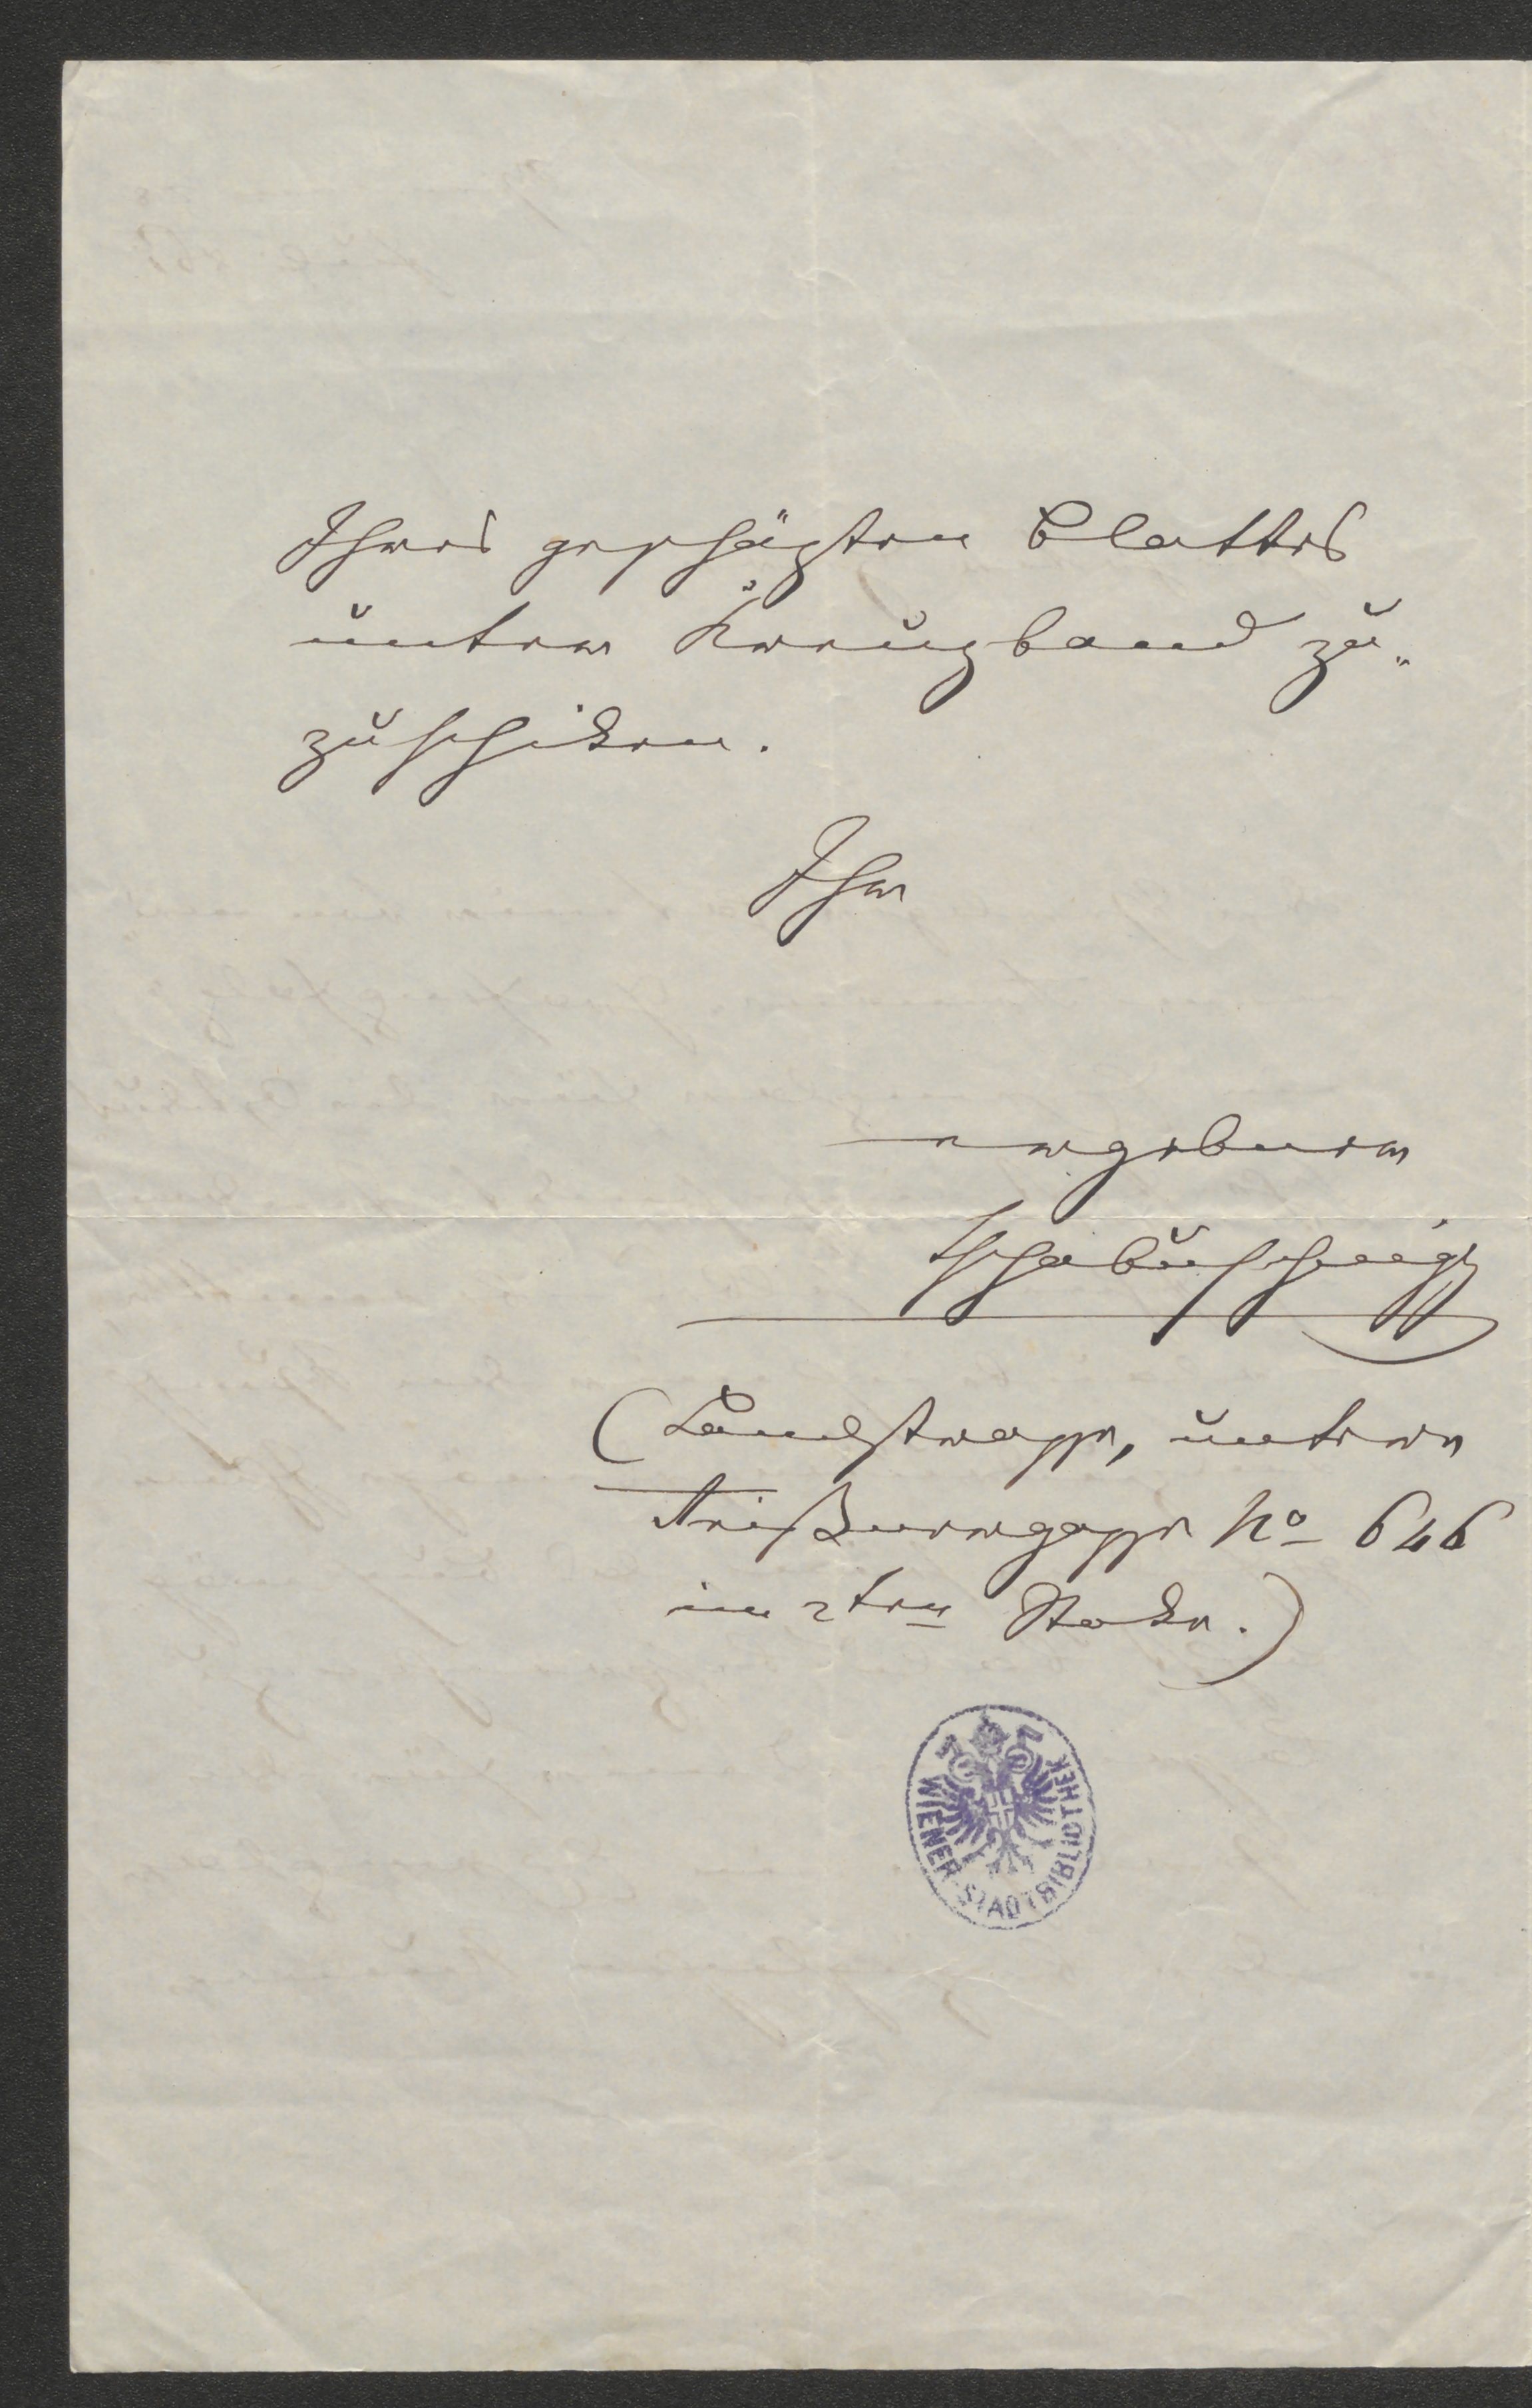 Ihres geschäzten Blattes
unter Kreuzband zu„
zuschiken.
Ihr
ergebener
Tschabuschnigg
(Landstrasse, untere
Reißnergasse No 646
im 2ten Stoke.)
WIENER STADTBIBLIOTHEK